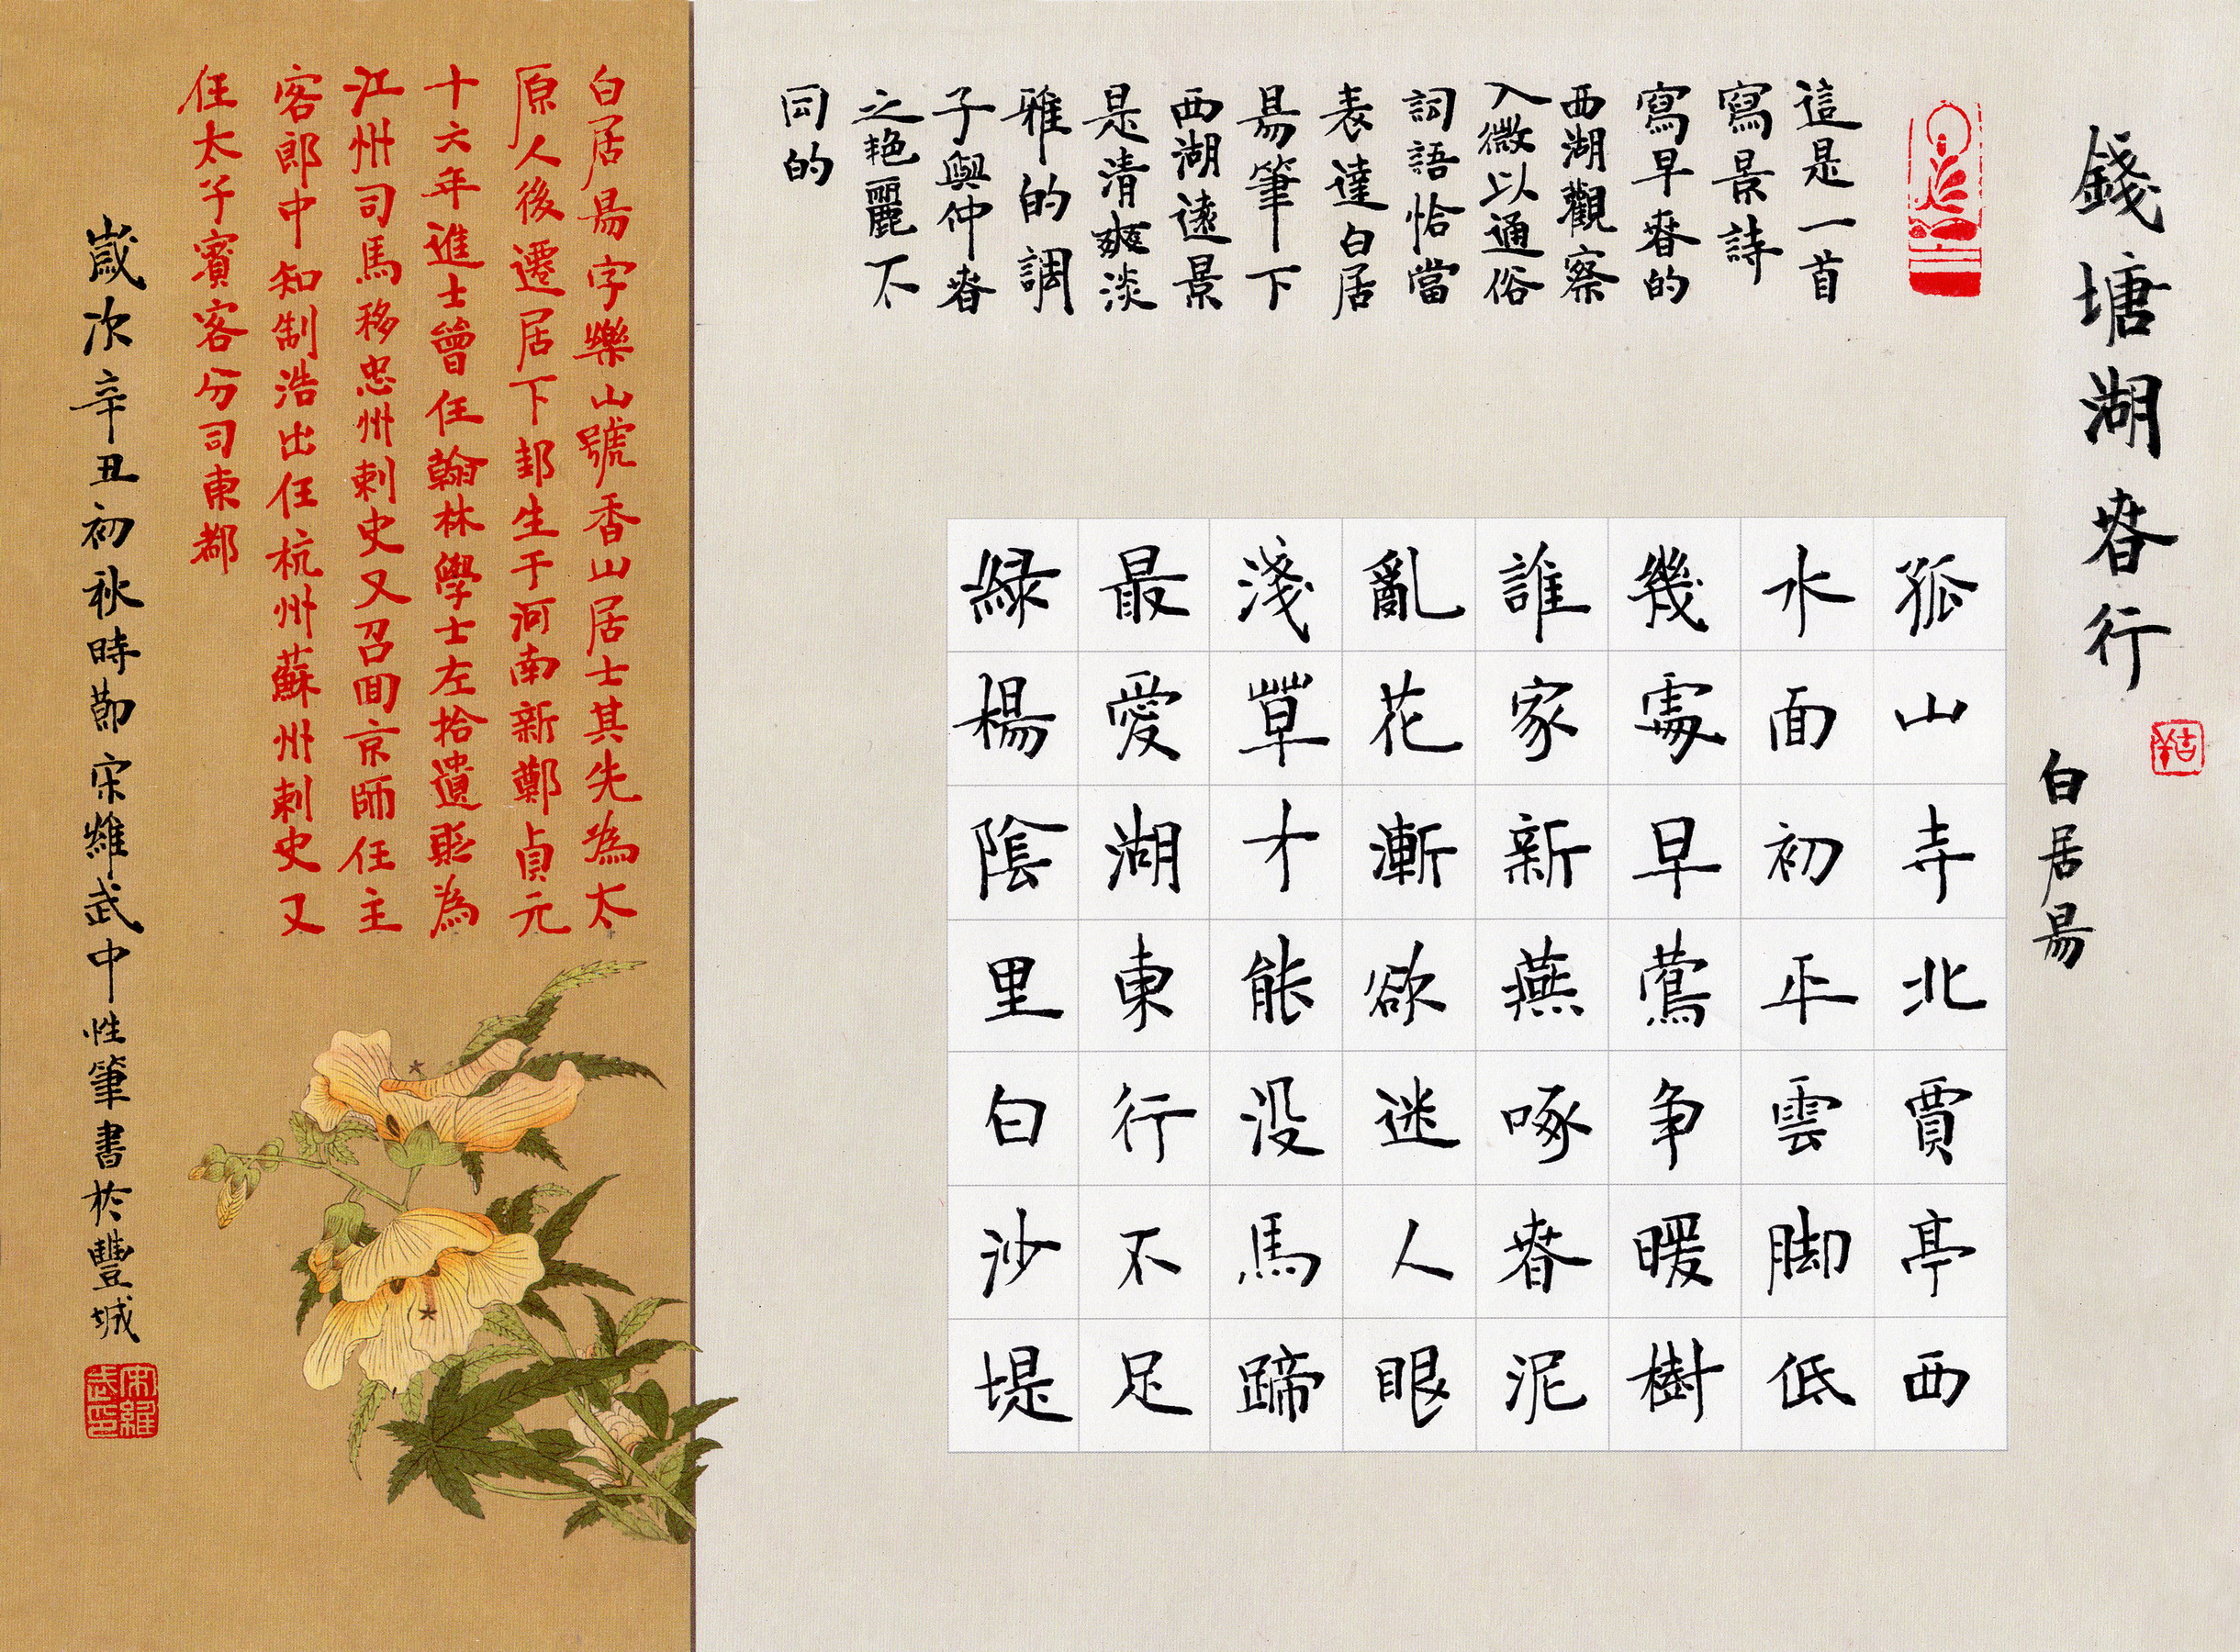 錢塘湖春行
白居易
這是一首
寫景詩
寫早春的
西湖觀察
入微以通俗
詞語恰當
表達白居
易筆下
西湖遠景
是清爽淡
雅的調
子與仲春
之艳麗不
同的
孤山寺北賈亭西
水面初平雲脚低
幾處早鶯争暖樹
誰家新燕啄春泥
亂花漸欲迷人眼
淺草才能没馬蹄
最愛湖東行不足
綠楊陰里白沙堤
白居易字樂山號香山居士其先為太
原人後遷居下邽生于河南新鄭貞元
十六年進士曾任翰林學士左拾遺貶為
江州司馬移忠州刺史又召回京師任主
客郎中知制浩出任杭州蘇州刺史又
任太子賓客分司東都
歲次辛丑初秋時節宋維武中性筆書於豐城
宋維武印